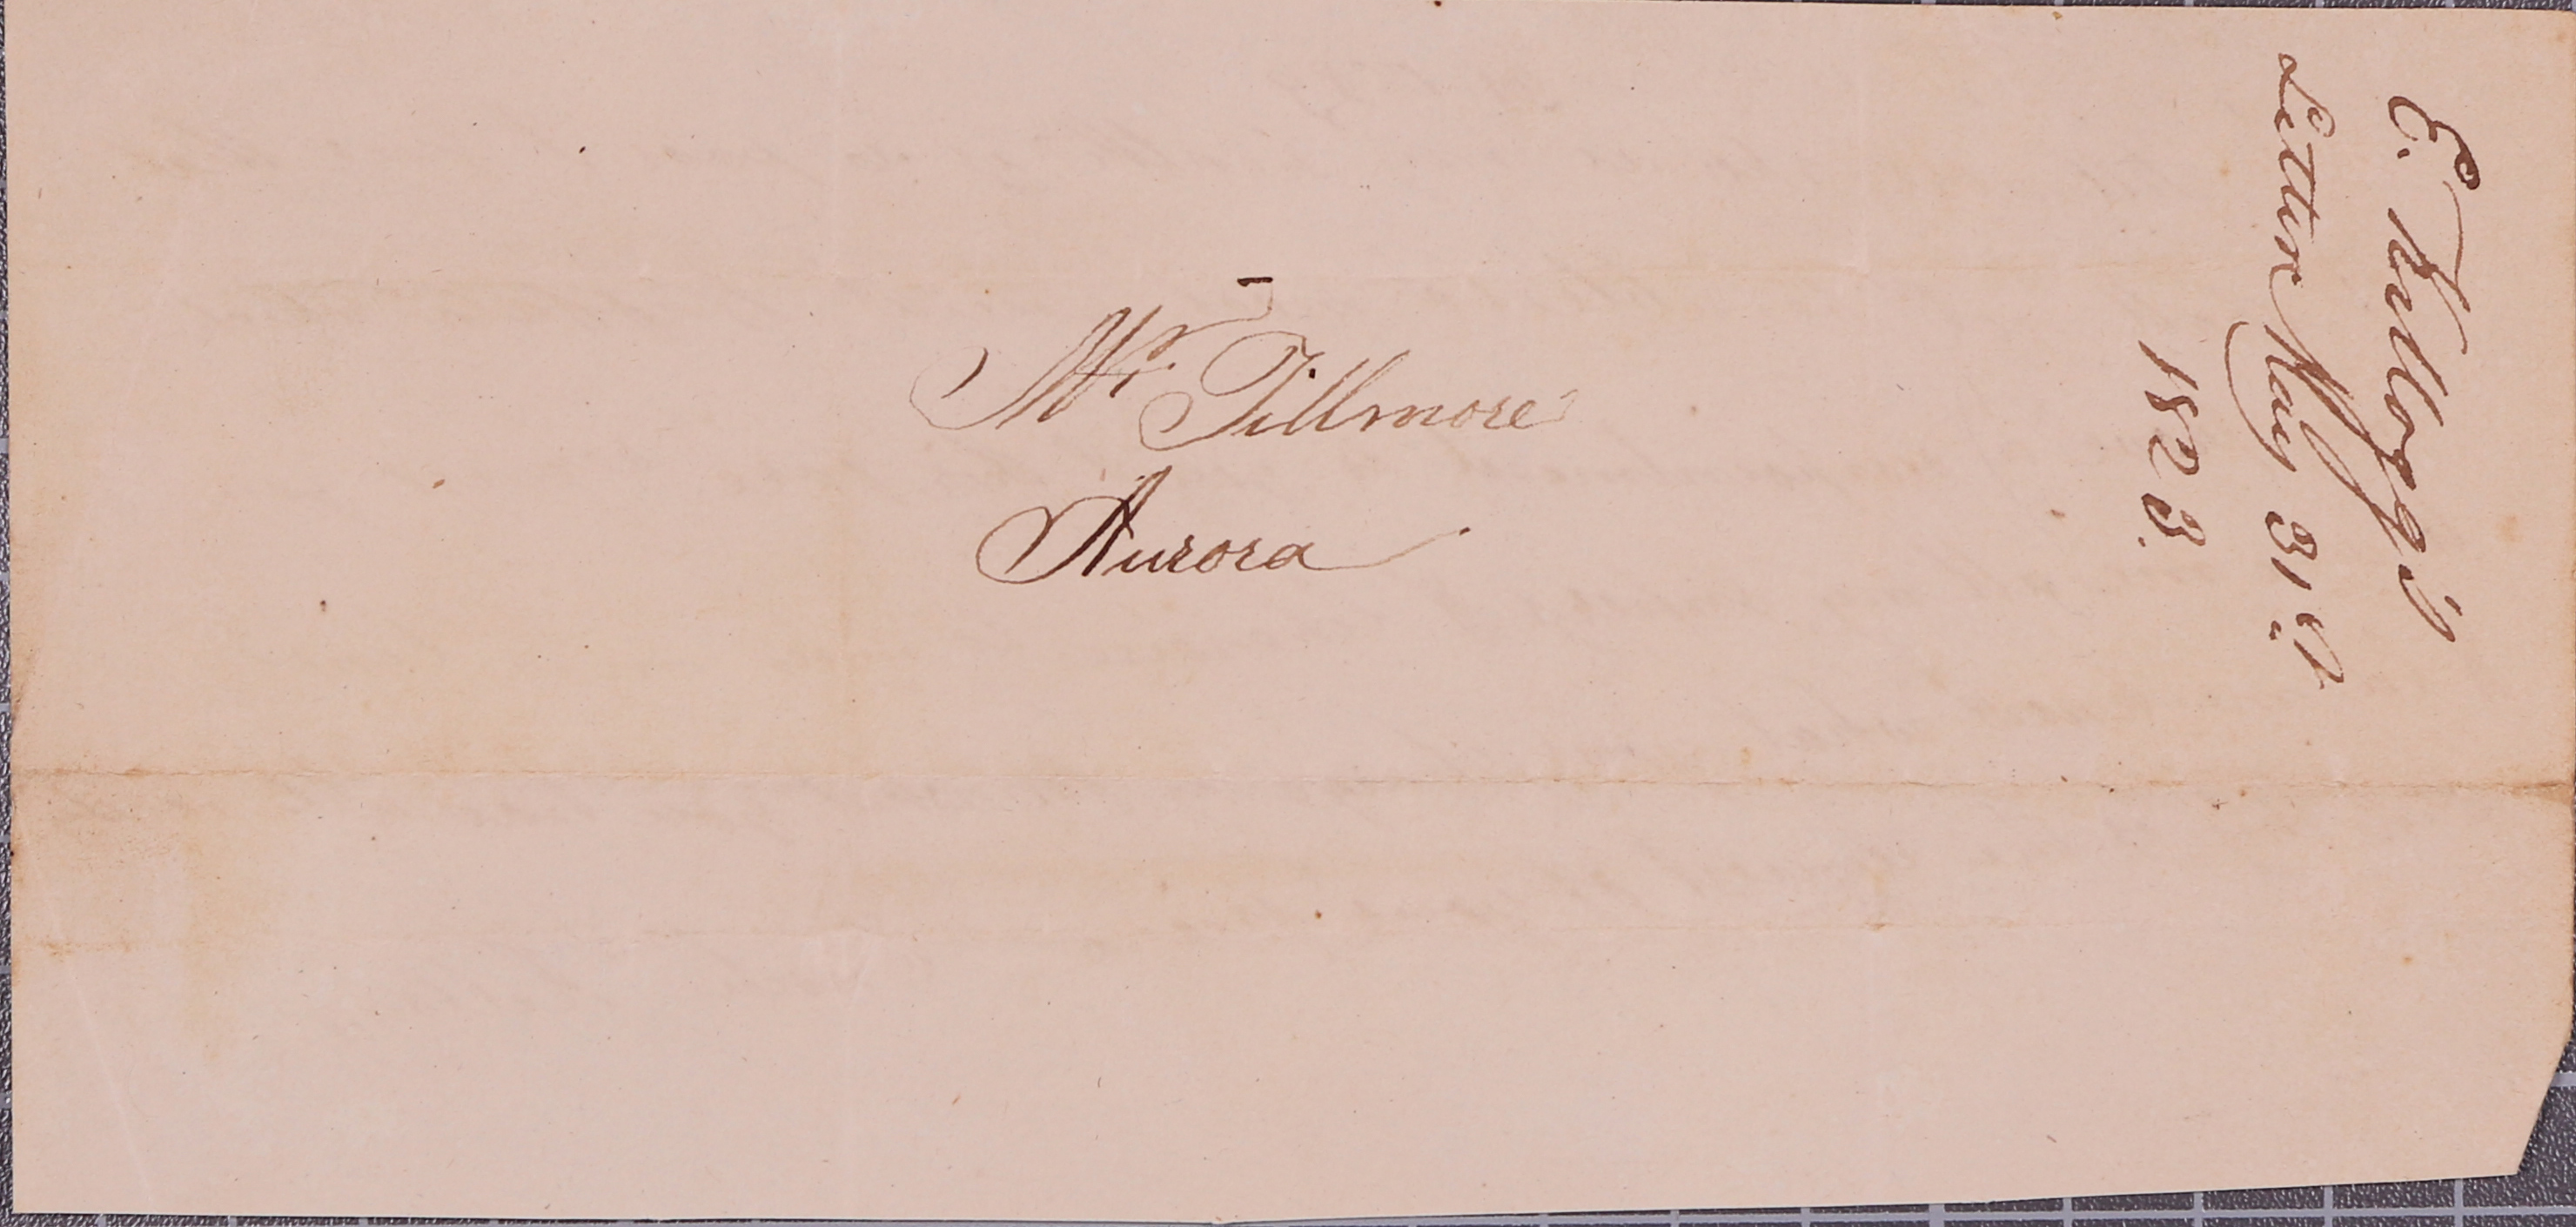 Mr. Fillmore
Aurora
E. Kellogg's
Letter May 31st
1823.